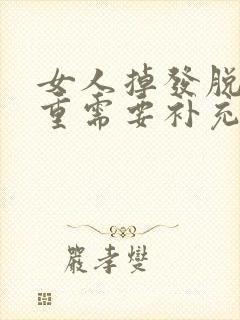 女人掉發脫
重需要补充
嚴孝燮